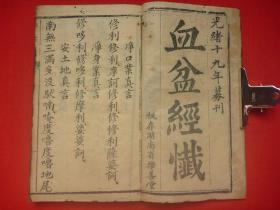 光緒十九年募刊
血盆經懺
板存湖南省雄善堂
淨口業真言
修利修利摩訶修利修修利薩婆訶
淨身業真言
修哆利修哆利修摩利修摩利薩婆訶
安土地真言
南無三滿多沒馱喃唵度嚕度嚕地尾